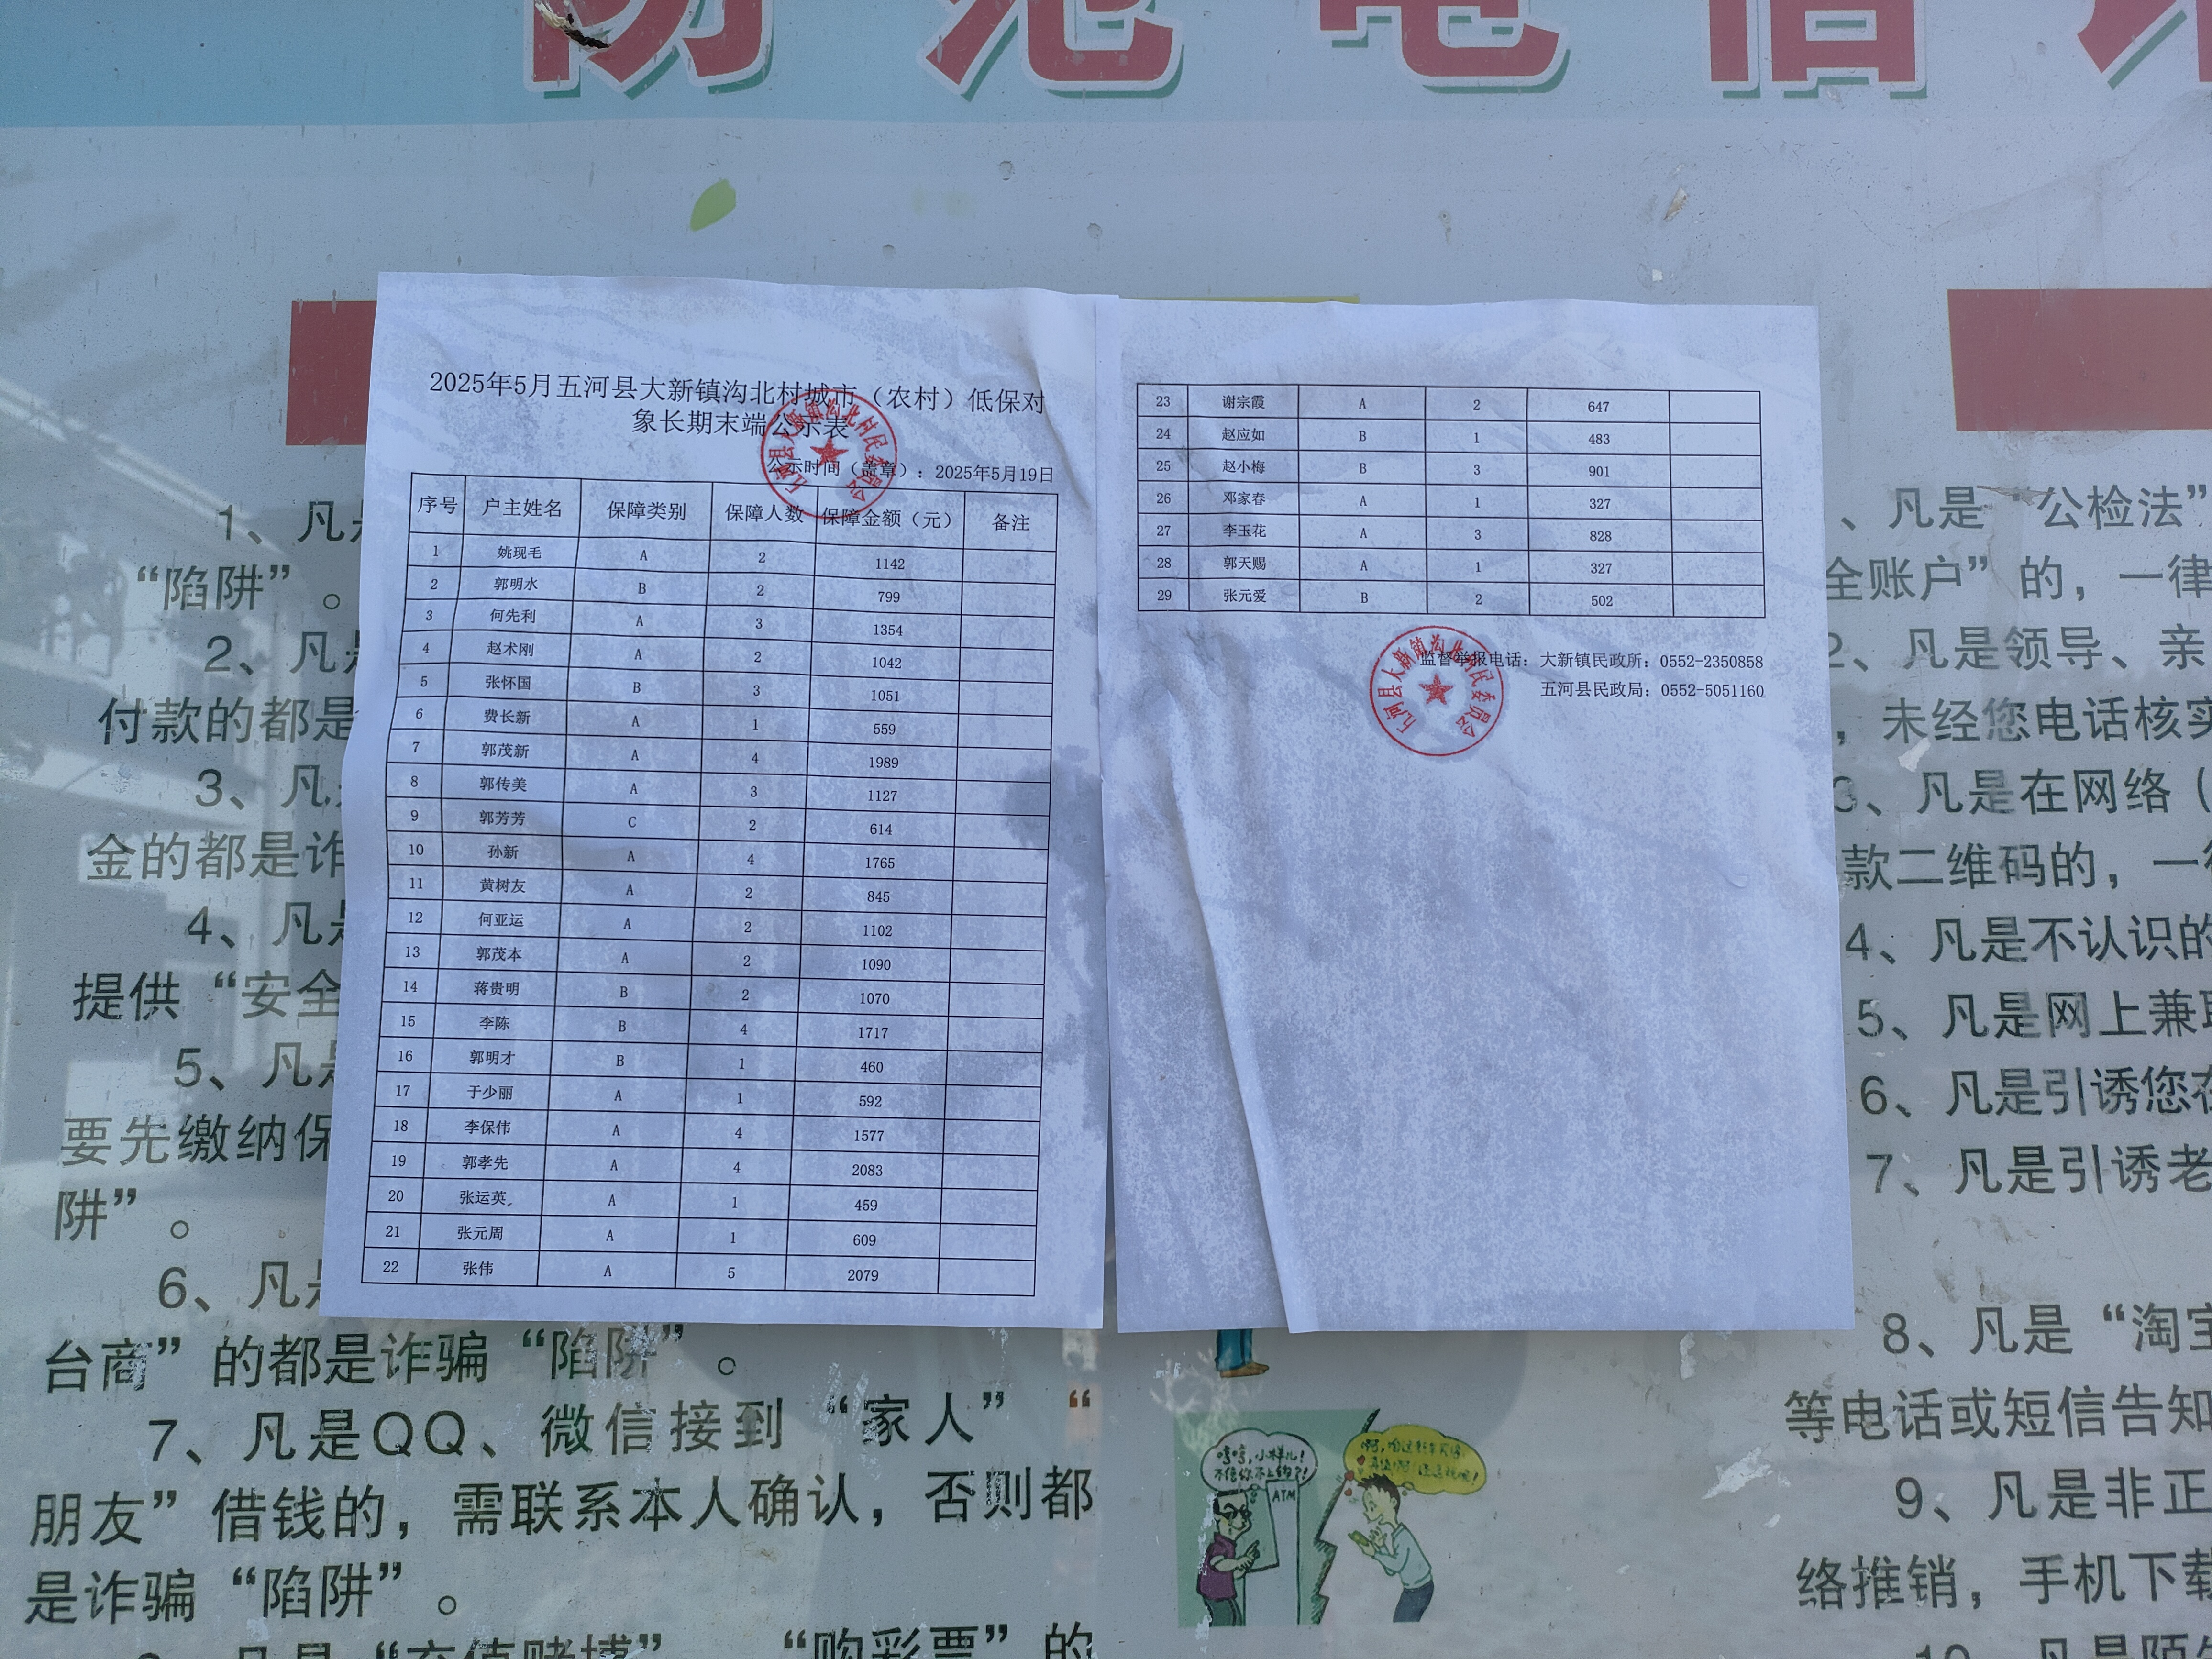 防范电信
2025年5月五河县大新镇沟北村城市（农村）低保对
象长期末端公示表
公示时间（盖章）：2025年5月19日
序号 户主姓名 保障类别 保障人数 保障金额（元） 备注
1 姚现毛 A 2 1142
2 郭明水 B 2 799
3 何先利 A 3 1354
4 赵术刚 A 2 1042
5 张怀国 B 3 1051
6 费长新 A 1 559
7 郭茂新 A 4 1989
8 郭传美 A 3 1127
9 郭芳芳 C 2 614
10 孙新 A 4 1765
11 黄树友 A 2 845
12 何亚运 A 2 1102
13 郭茂本 A 2 1090
14 蒋贵明 B 2 1070
15 李陈 B 4 1717
16 郭明才 B 1 460
17 于少丽 A 1 592
18 李保伟 A 4 1577
19 郭孝先 A 4 2083
20 张运英 A 1 459
21 张元周 A 1 609
22 张伟 A 5 2079
23 谢宗霞 A 2 647
24 赵应如 B 1 483
25 赵小梅 B 3 901
26 邓家春 A 1 327
27 李玉花 A 3 828
28 郭天赐 A 1 327
29 张元爱 B 2 502
监督举报电话：大新镇民政所：0552-2350858
五河县民政局：0552-5051160
五河县大新镇沟北村民委员会
1、凡是
“陷阱”。
2、凡是
付款的都是
3、凡是
金的都是诈
4、凡是
提供“安全
5、凡是
要先缴纳保
阱”。
6、凡是
台商”的都是诈骗“陷阱”。
7、凡是QQ、微信接到“家人”“
朋友”借钱的，需联系本人确认，否则都
是诈骗“陷阱”。
“充值赌博”、“购彩票”的
、凡是“公检法”
全账户”的，一律
2、凡是领导、亲
，未经您电话核实
3、凡是在网络（
款二维码的，一律
4、凡是不认识的
5、凡是网上兼职
6、凡是引诱您在
7、凡是引诱老
8、凡是“淘宝
等电话或短信告知
9、凡是非正
络推销，手机下载
10、凡是陌生
ATM